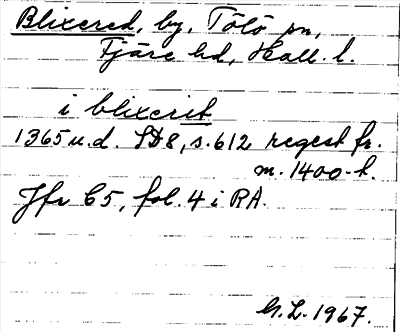 Blixered, by, Tölö sn,
Fjäre hd, Hall. l.
i blixerit
1365 u.d. SD8, s. 612 regest fr.
m. 1400-t.
Jfr C5, fol. 4 i RA.
G.L. 1967.